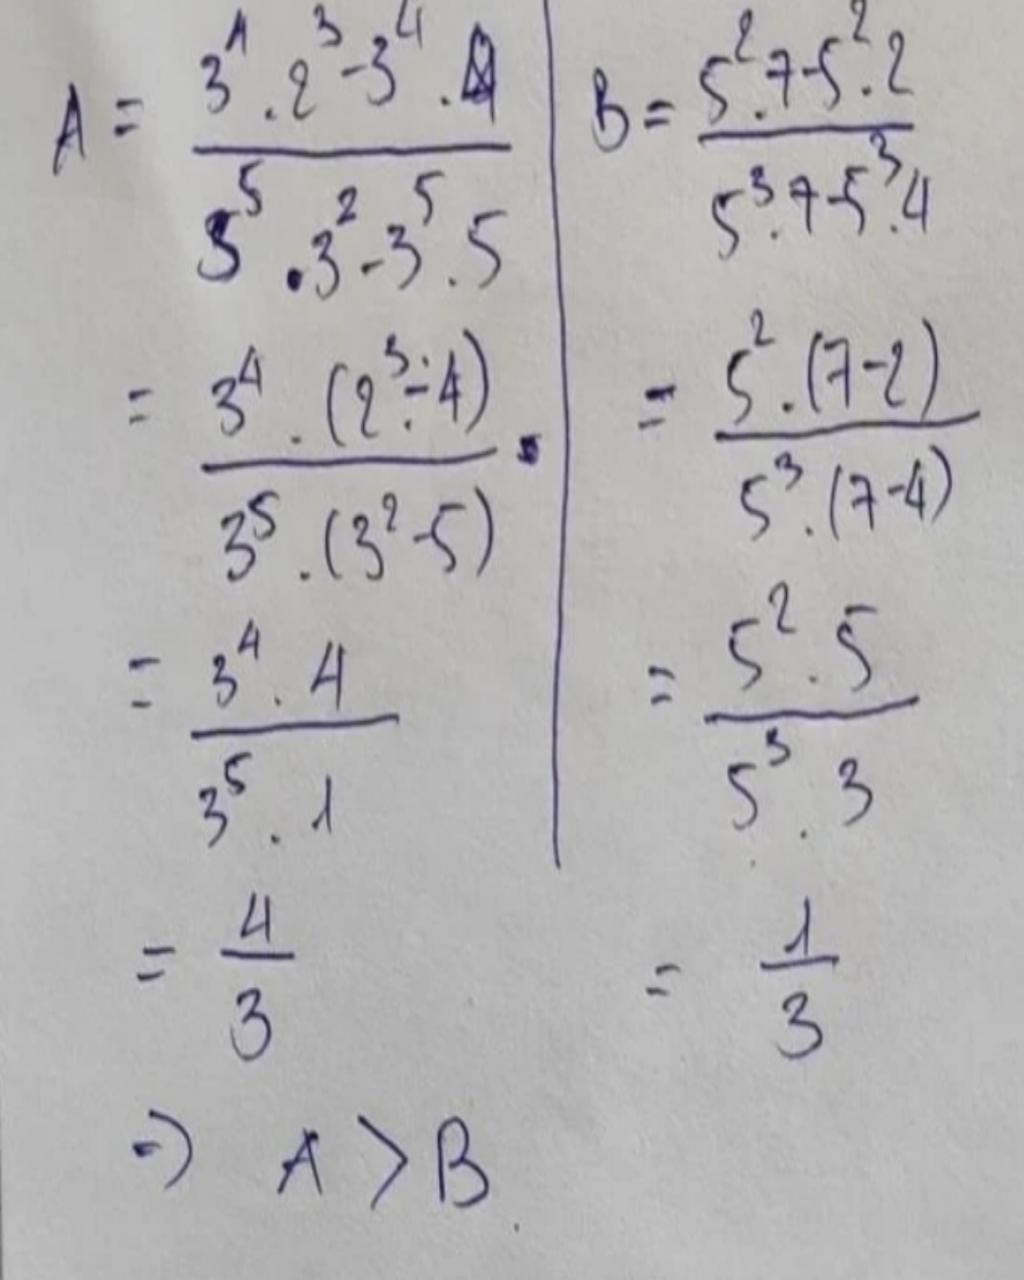 A = (3⁴ . 2³ - 3⁴ . 4) / (3⁵ . 3² - 3⁵ . 5)
= (3⁴ . (2³ - 4)) / (3⁵ . (3² - 5))
= (3⁴ . 4) / (3⁵ . 1)
= 4 / 3
B = (5² . 7 - 5² . 2) / (5³ . 7 - 5³ . 4)
= (5² . (7 - 2)) / (5³ . (7 - 4))
= (5² . 5) / (5³ . 3)
= 1 / 3
⇒ A > B